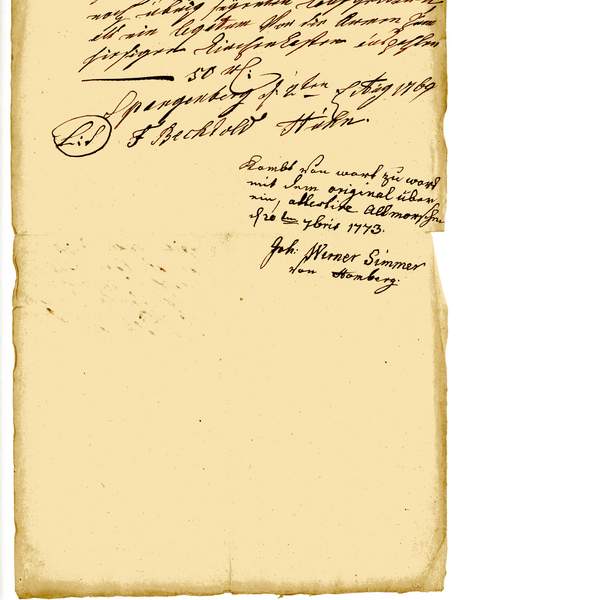 noch übrig
als ein legatum vor die Armen zum
hiesigen Kirchenkasten
50 rl:
Spangenberg d. 2ten Aug 1769
F Bechtold Hühn.
Kombt von wort zu wort
mit dem original über
ein, attestire Altmorschen
d 20 ten 7bris 1773.
Joh: Werner Simmer
von Homberg: